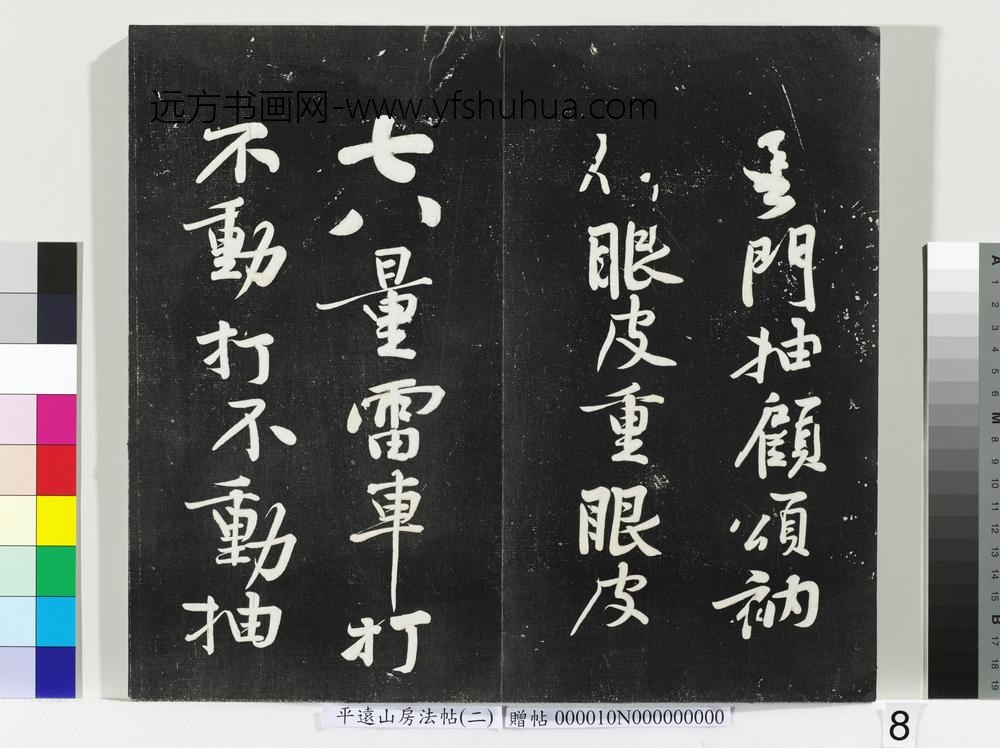 远方书画网-www.yfshuhua.com
雲門抽顧頌衲
眼皮重眼皮
七八量雷車打
不動打不動抽
平遠山房法帖(二)
贈帖 000010N000000000
8
A 1 2 3 4 5 6 M 8 9 10 11 12 13 14 15 B 17 18 19